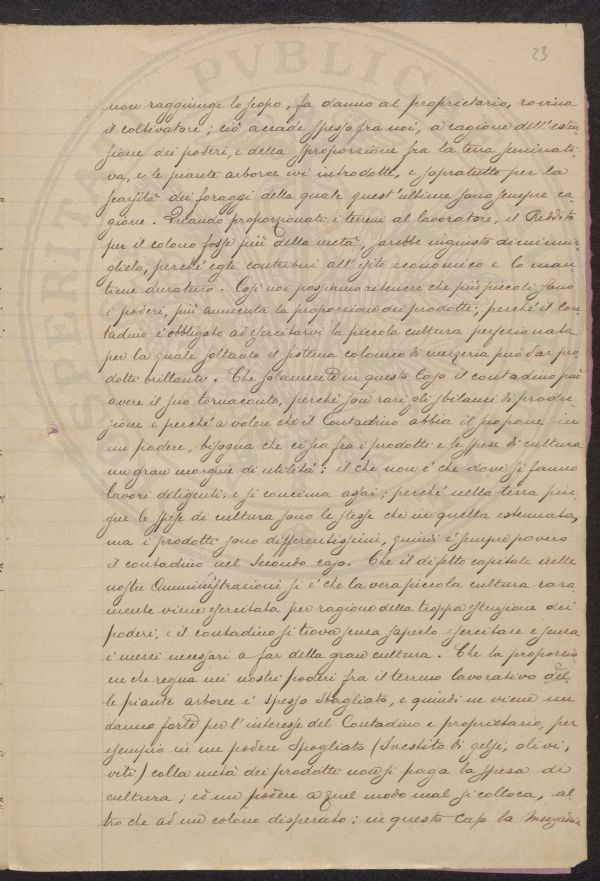 23
non raggiunge lo scopo, fa danno al proprietario, rovina
il coltivatore; ciò accade spesso fra noi, a cagione dell'esten-
sione dei poderi, e della sproporzione fra la terra seminati-
va, e le piante arboree ivi introdotte, e sopratutto per la
scarsità dei foraggi della quale quest'ultime sono sempre ca-
gione. Quando proporzionati i terreni al lavoratore, il Reddito
per il colono fosse più della metà, sarebbe ingiusto diminuir-
glielo, perché egli contribuì all'esito economico e lo man-
tiene duraturo. Così noi possiamo ritenere che più piccoli sono
i poderi, più aumenta la proporzione dei prodotti; perché il con-
tadino è obbligato ad esercitarvi la piccola cultura perfezionata
per la quale soltanto il sistema colonico di mezzeria può dar pro-
dotti brillanti. Che solamente in questo caso il contadino può
avere il suo tornaconto, perché son rari gli sbilanci di produ-
zione e perché a volere che il Contadino abbia il suo pane in
un podere, bisogna che ci sia fra i prodotti e le spese di cultura
un gran margine di utilità: il che non è che dove si fanno
lavori diligenti, e si concima assai; perché nella terra pin-
gue le spese di cultura sono le stesse che in quella estenuata,
ma i prodotti sono differentissimi, quindi è sempre povero
il contadino nel secondo caso. Che il difetto capitale nelle
nostre Amministrazioni si è che la vera piccola cultura rara-
mente viene esercitata per ragione della troppa estenzione dei
poderi, e il contadino si trova senza saperla esercitare e senza
i mezzi necessari a far della gran cultura. Che la proporzio-
ne che regna nei nostri poderi fra il terreno lavorativo e
le piante arboree è spesso sbagliata, e quindi ne viene un
danno forte per l'interesse del Contadino e proprietario, per
esempio in un podere spogliato (svestito di gelsi, olivi,
viti) colla metà dei prodotti non si paga la spesa di
cultura; ed un podere a quel modo mal si colloca, al-
tro che ad un colono disperato: in questo caso la mezzadria